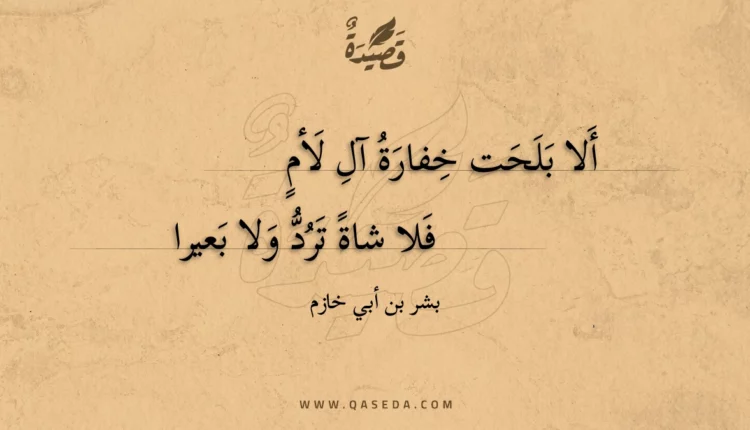 قَصِيدَةٌ
أَلا بَلَحَت خِفارَةُ آلِ لَأمٍ
فَلا شاةً تَرُدُّ وَلا بَعيرا
بشر بن أبي خازم
WWW.QASEDA.COM